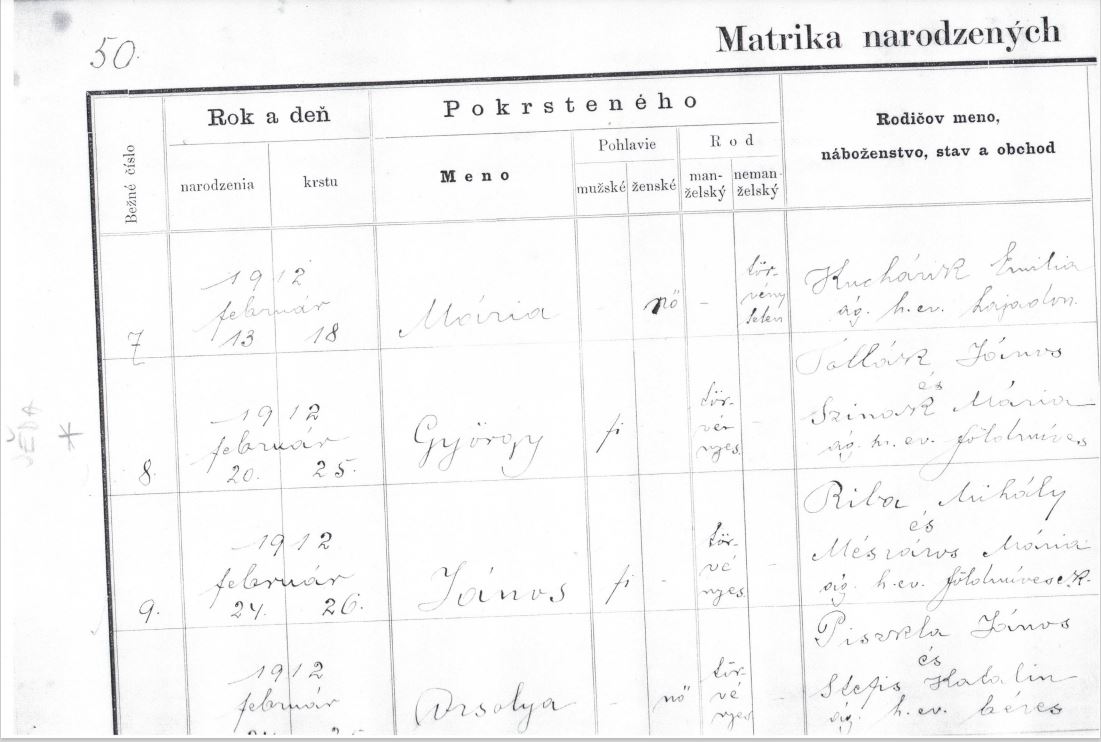 50.
Matrika narodzených
Bežné číslo
Rok a deň
narodzenia
krstu
Pokrsteného
Meno
Pohlavie
mužské
ženské
Rod
man-
želský
neman-
želský
Rodičov meno,
náboženstvo, stav a obchod
7
1912
február
13 18
Mária
-
nő
-
tör-
vény
telen
Kuchárik Emilia
ág. h. ev. hajadon
8.
1912
február
20. 25.
György
fi
-
tör-
vé-
nyes.
-
János
és
Mária
ág. h. ev. földmíves
9.
1912
február
24. 26.
János
fi
-
tör-
vé
nyes.
-
Riba Mihály
és
Mészáros Mária
ág. h. ev. földmívesek.
1912
február
Orsolya
-
nő
tör-
vé
nyes
-
Piszkla János
és
Katalin
ág. h. ev. béres